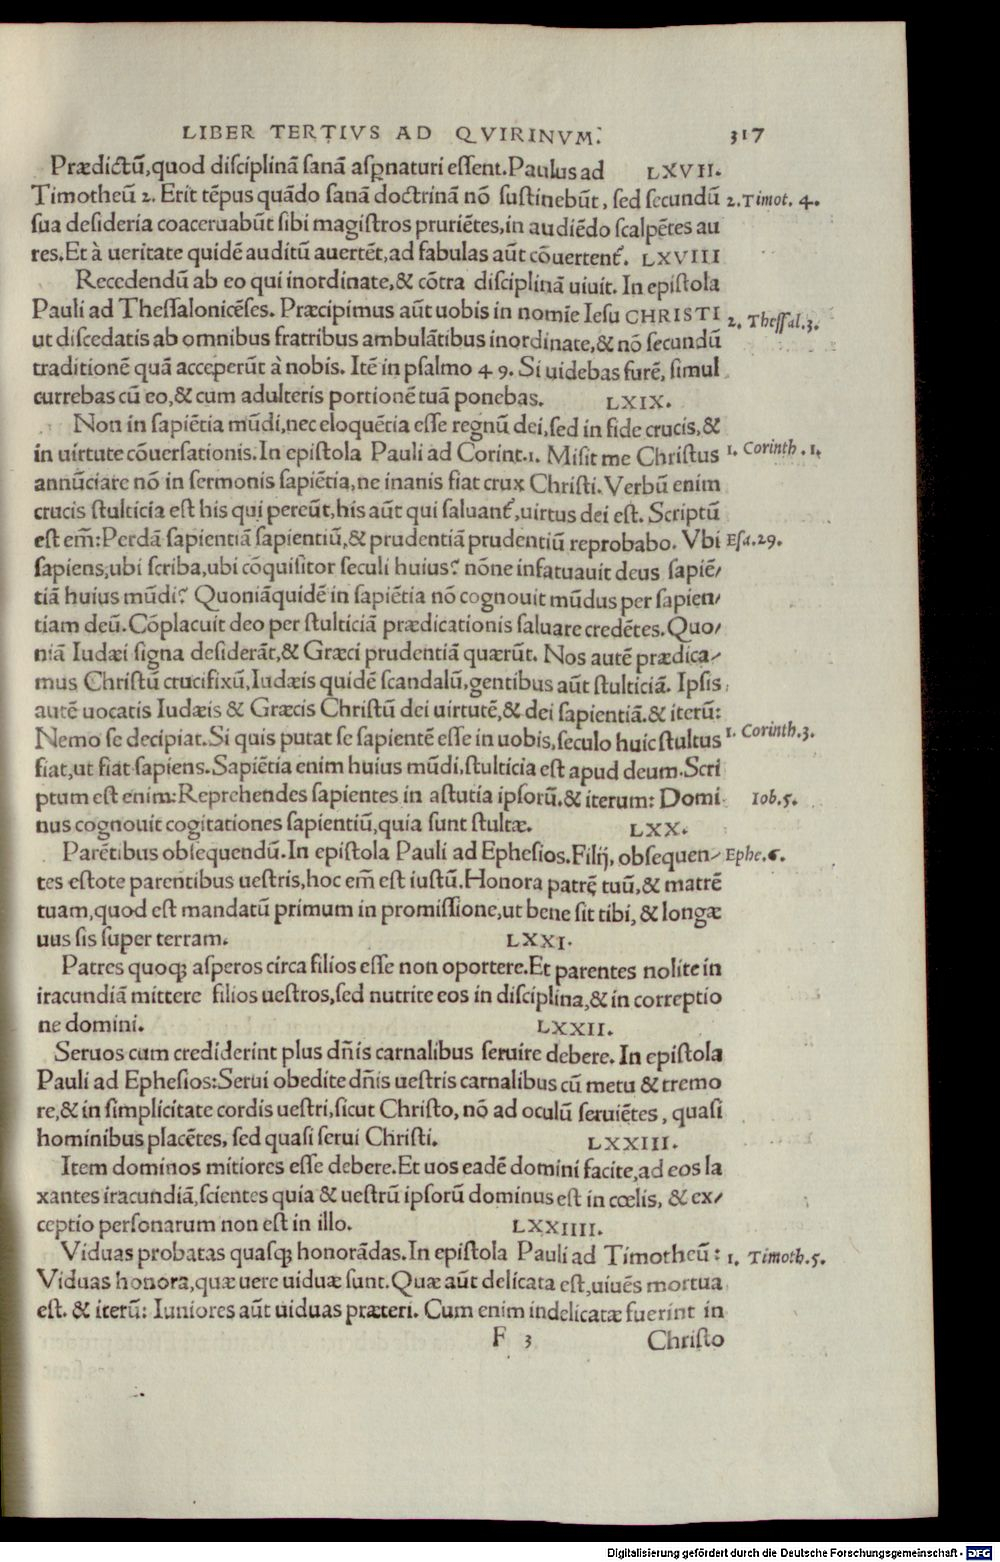 LIBER TERTIVS AD QVIRINVM. 317
Prædictū, quod disciplinā sanā aspnaturi essent. Paulus ad LXVII.
Timotheū 2. Erit tēpus quādo sanā doctrinā nō sustinebūt, sed secundū 2. Timot. 4.
sua desideria coaceruabūt sibi magistros pruriētes, in audiēdo scalpētes au
res. Et à ueritate quidē auditū auertēt, ad fabulas aūt cōuertent̃. LXVIII
Recedendū ab eo qui inordinate, & cōtra disciplinā uiuit. In epistola
Pauli ad Thessalonicēses. Præcipimus aūt uobis in nomie Iesu CHRISTI 2. Thessal. 3.
ut discedatis ab omnibus fratribus ambulātibus inordinate, & nō secundū
traditionē quā acceperūt à nobis. Itē in psalmo 49. Si uidebas furē, simul
currebas cū eo, & cum adulteris portionē tuā ponebas. LXIX.
Non in sapiētia mūdi, nec eloquētia esse regnū dei, sed in fide crucis, &
in uirtute cōuersationis. In epistola Pauli ad Corint. 1. Misit me Christus 1. Corinth. 1.
annūciare nō in sermonis sapiētia, ne inanis fiat crux Christi. Verbū enim
crucis stulticia est his qui pereūt, his aūt qui saluant̃, uirtus dei est. Scriptū
est em̄: Perdā sapientiā sapientiū, & prudentiā prudentiū reprobabo. Vbi Esa. 29.
sapiens, ubi scriba, ubi cōquisitor seculi huius? nōne infatuauit deus sapiē/
tiā huius mūdi? Quoniāquidē in sapiētia nō cognouit mūdus per sapien/
tiam deū. Cōplacuit deo per stulticiā prædicationis saluare credētes. Quo/
niā Iudæi signa desiderāt, & Græci prudentiā quærūt. Nos autē prædica/
mus Christū crucifixū, Iudæis quidē scandalū, gentibus aūt stulticiā. Ipsis
autē uocatis Iudæis & Græcis Christū dei uirtutē, & dei sapientiā. & iterū:
Nemo se decipiat. Si quis putat se sapientē esse in uobis, seculo huic stultus 1. Corinth. 3.
fiat, ut fiat sapiens. Sapiētia enim huius mūdi, stulticia est apud deum. Scri
ptum est enim: Reprehendes sapientes in astutia ipsorū. & iterum: Domi Iob. 5.
nus cognouit cogitationes sapientiū, quia sunt stultæ. LXX.
Parētibus obsequendū. In epistola Pauli ad Ephesios. Filij, obsequen/ Ephe. 6.
tes estote parentibus uestris, hoc em̄ est iustū. Honora patrē tuū, & matrē
tuam, quod est mandatū primum in promissione, ut bene sit tibi, & longæ
uus sis super terram. LXXI.
Patres quoq; asperos circa filios esse non oportere. Et parentes nolite in
iracundiā mittere filios uestros, sed nutrite eos in disciplina, & in correptio
ne domini. LXXII.
Seruos cum crediderint plus dn̄is carnalibus seruire debere. In epistola
Pauli ad Ephesios: Serui obedite dn̄is uestris carnalibus cū metu & tremo
re, & in simplicitate cordis uestri, sicut Christo, nō ad oculū seruiētes, quasi
hominibus placētes, sed quasi serui Christi. LXXIII.
Item dominos mitiores esse debere. Et uos eadē domini facite, ad eos la
xantes iracundiā, scientes quia & uestrū ipsorū dominus est in cœlis, & ex/
ceptio personarum non est in illo. LXXIIII.
Viduas probatas quasq; honorādas. In epistola Pauli ad Timotheū: 1. Timoth. 5.
Viduas honora, quæ uere uiduæ sunt. Quæ aūt delicata est, uiuēs mortua
est. & iterū: Iuniores aūt uiduas præteri. Cum enim indelicatæ fuerint in
F 3 Christo
Digitalisierung gefördert durch die Deutsche Forschungsgemeinschaft - DFG